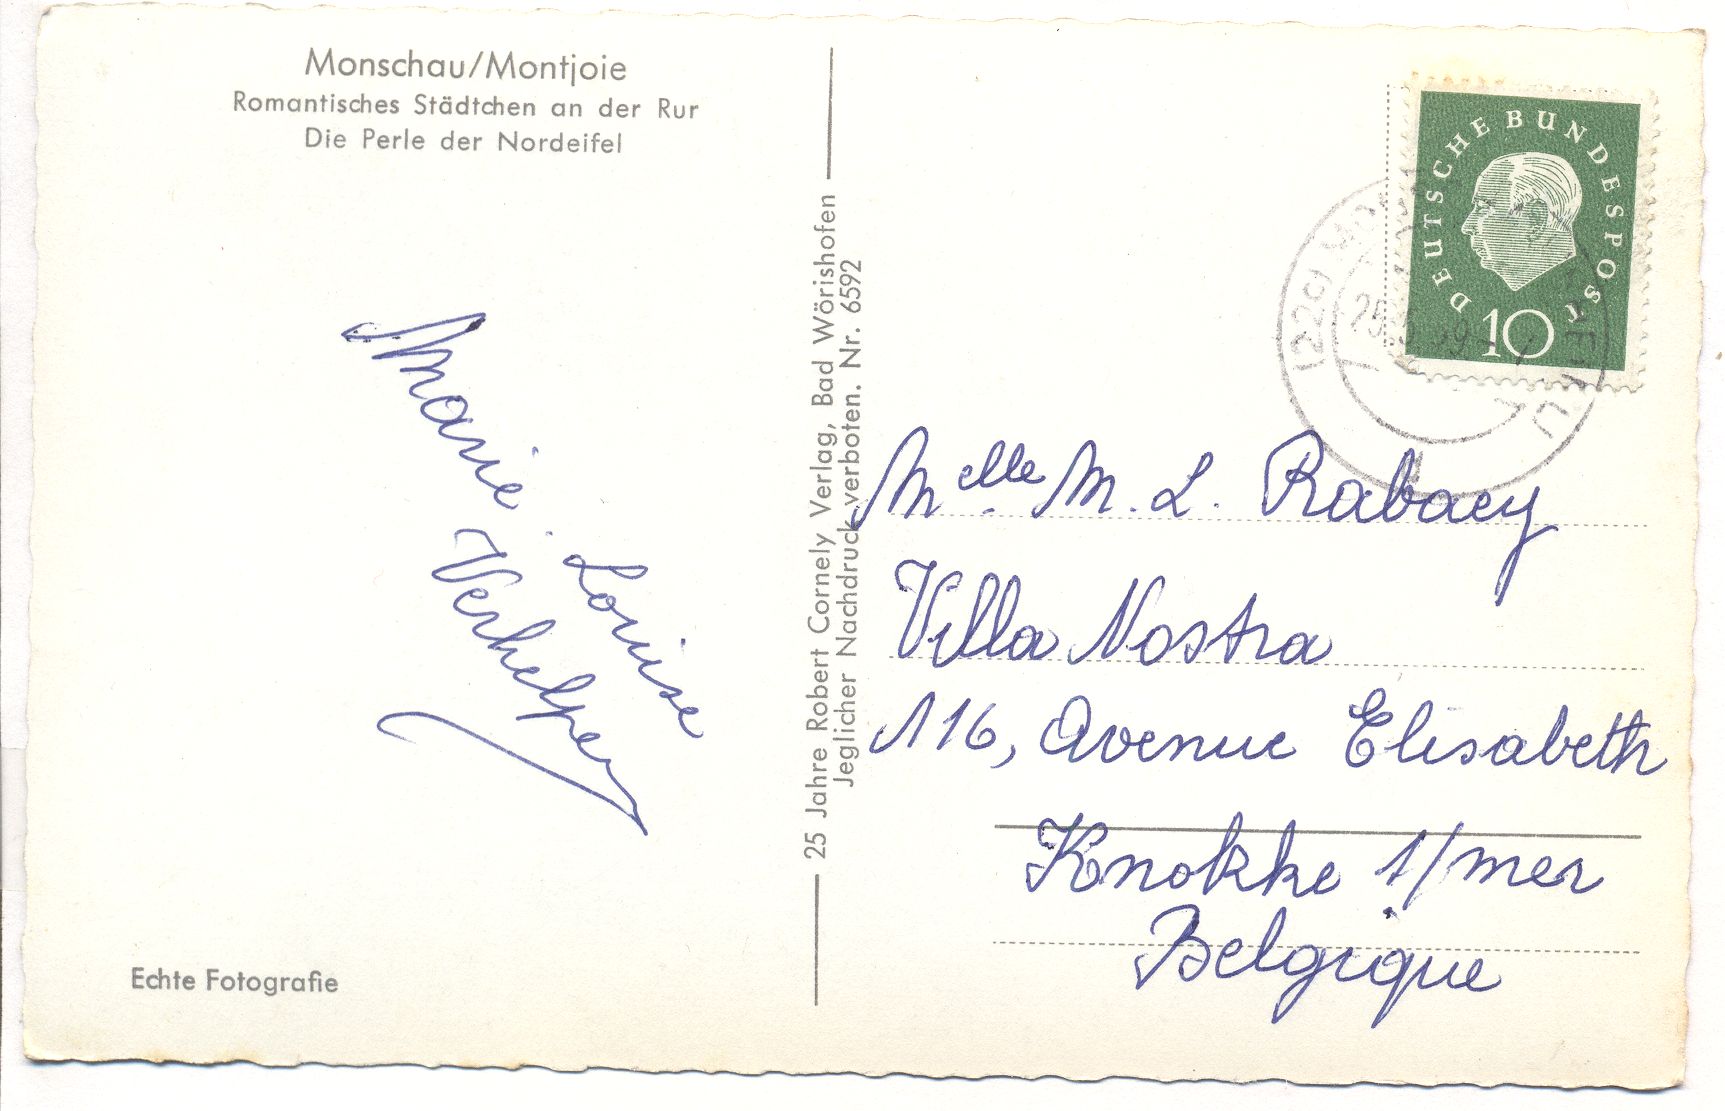 Monschau/Montjoie
Romantisches Städtchen an der Rur
Die Perle der Nordeifel
Marie Louise
Verhelpen
Echte Fotografie
25 Jahre Robert Cornely Verlag, Bad Wörishofen
Jeglicher Nachdruck verboten. Nr. 6592
DEUTSCHE BUNDESPOST
10
(22c)
Melle M. L. Rabaey
Villa Nostra
116, Avenue Elisabeth
Knokke s/mer
Belgique